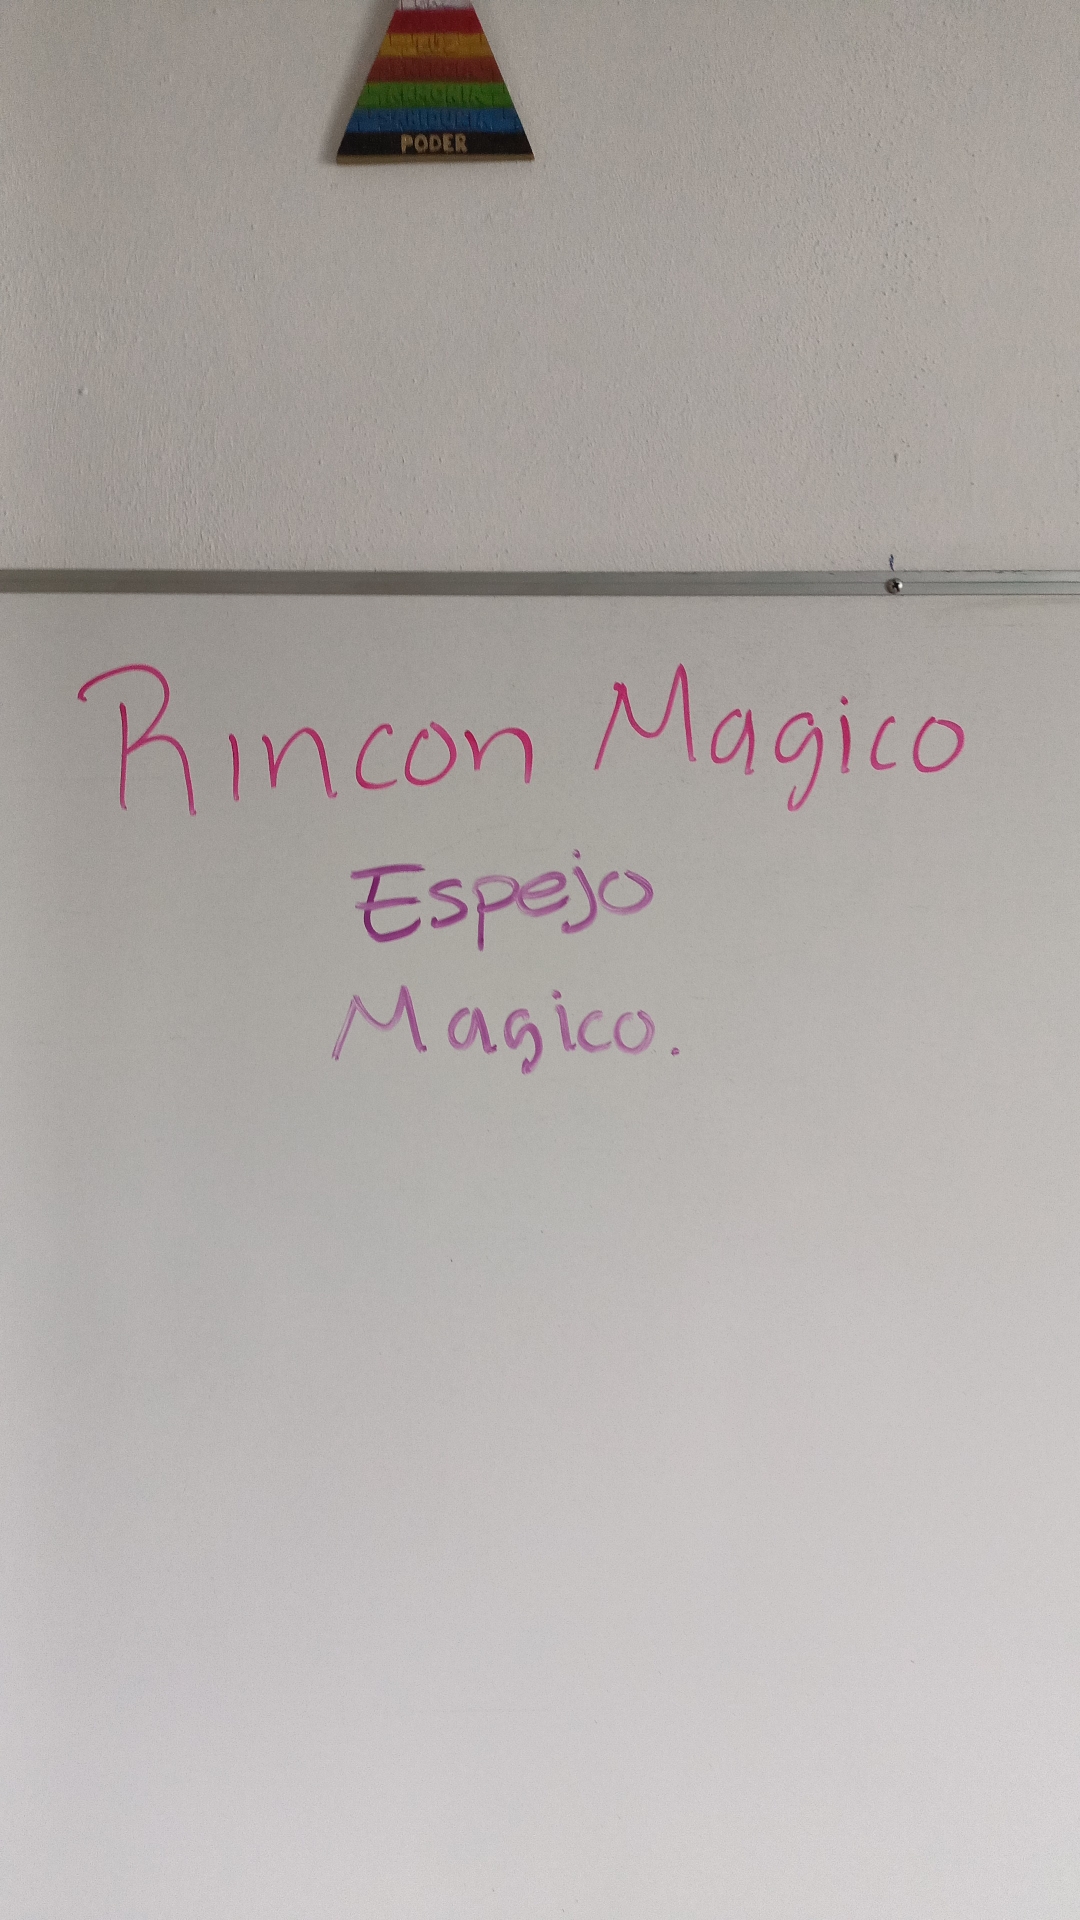 PODER
Rincon Magico
Espejo
Magico.